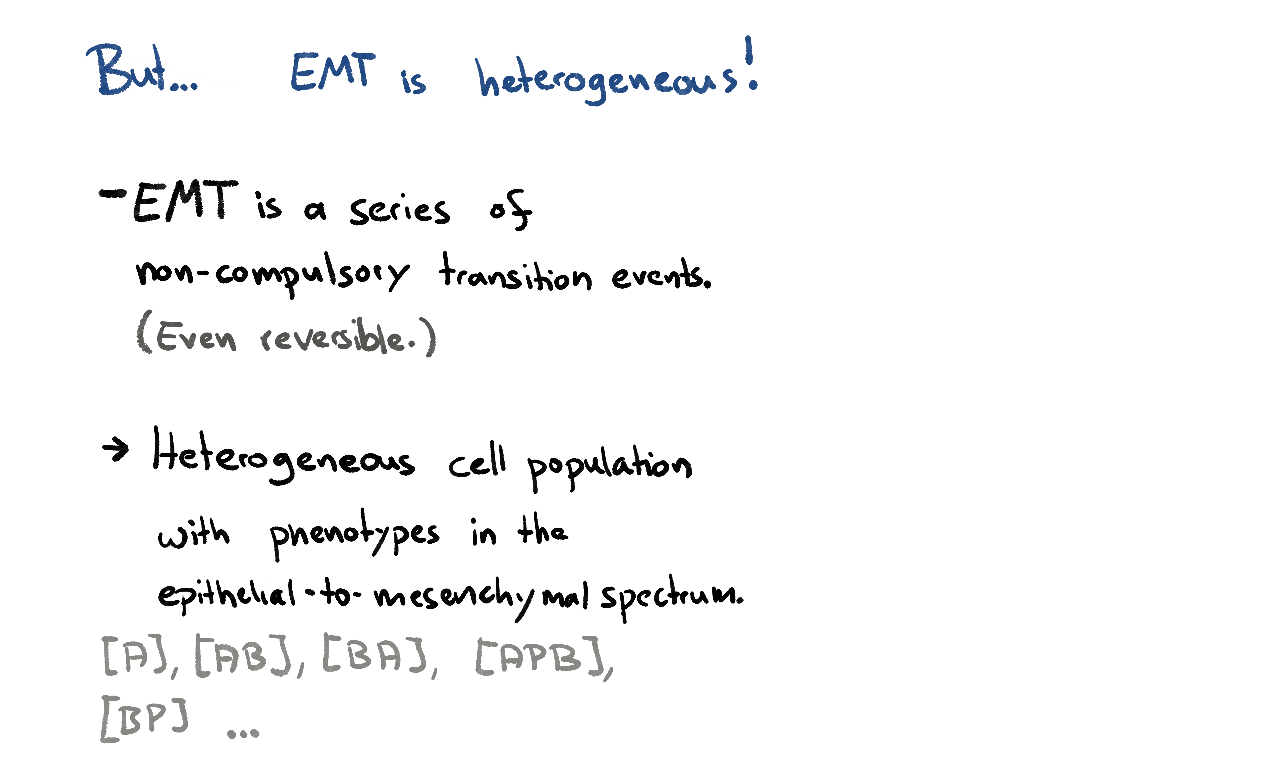 But... EMT is heterogeneous!
- EMT is a series of
non-compulsory transition events.
(Even reversible.)
→ Heterogeneous cell population
with phenotypes in the
epithelial-to-mesenchymal spectrum.
[A], [AB], [BA], [APB],
[BP] ...